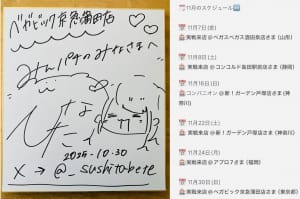 ベガビック京急蒲田店
みんパチのみなさまへ
2025.10.30
X → @_sushitabete
11月のスケジュール
11月7日(金)
実戦来店 @ベガスベガス酒田泉店さま (山形)
11月8日(土)
実戦来店 @コンコルド島田駅前店さま (静岡)
11月16日(日)
コンパニオン @新!ガーデン戸塚店さま (神奈川)
11月22日(土)
実戦来店 @新!ガーデン戸塚店さま (神奈川)
11月24日(月)
実戦来店 @アプロ7さま (福岡)
11月30日(日)
実戦来店 @ベガビック京急蒲田店さま (東京都)